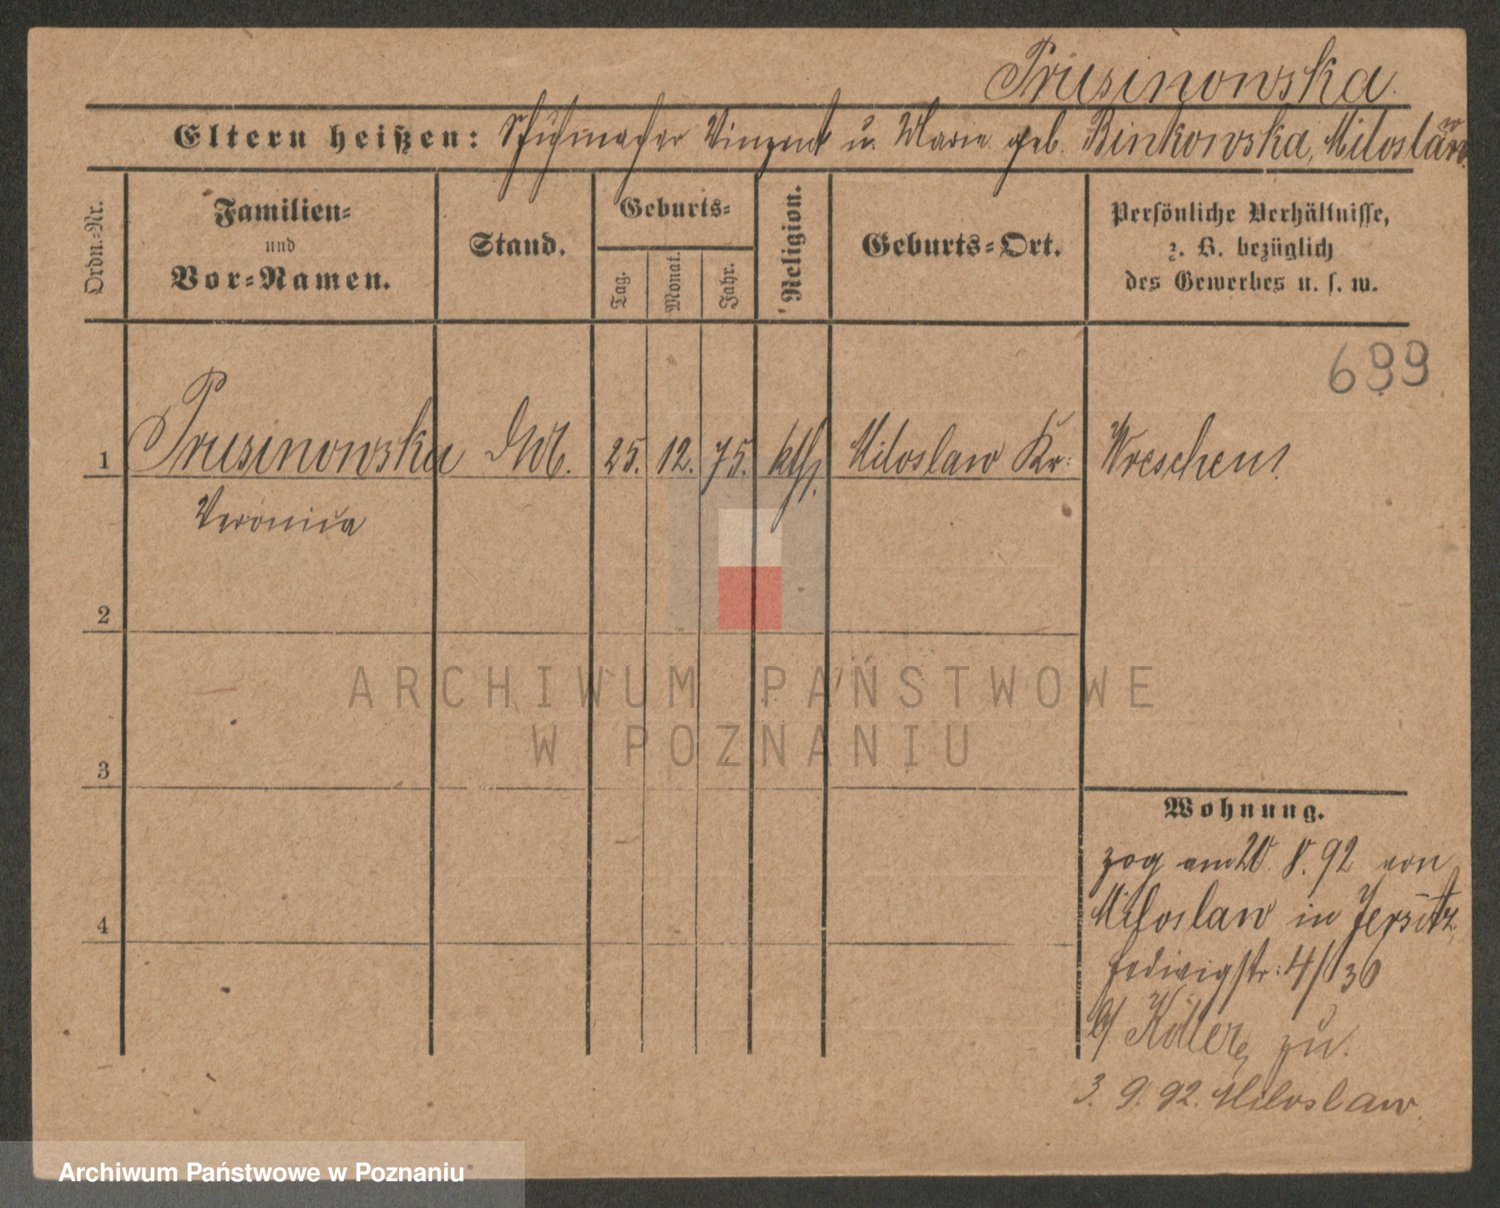 Prusinowska
Eltern heißen: Schuhmacher Vinzent u. Marie geb. Binkowska, Miloslaw
Ordn.-Nr.
Familien-
und
Vor-Namen.
Stand.
Geburts-
Tag.
Monat.
Jahr.
Religion.
Geburts-Ort.
Persönliche Verhältnisse,
z. B. bezüglich
des Gewerbes u. s. w.
699
1 Prusinowska 25. 12. 75. kth. Miloslaw Kr: Wreschen
Veronica
2
3
4
ARCHIWUM PAŃSTWOWE
W POZNANIU
Wohnung.
zog am 20. 8. 92 von
Miloslaw in Jersitz
Hedwigstr: 4/130
b/ Köller zu.
3. 9. 92. Miloslaw.
Archiwum Państwowe w Poznaniu